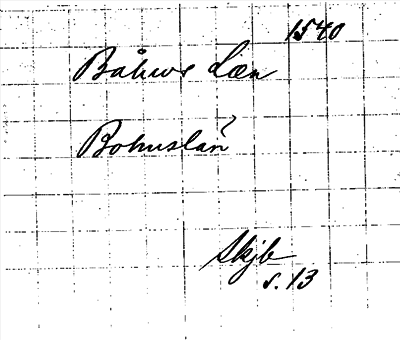 1540
Båhus Læn
Bohuslän
Skjb
s. 13